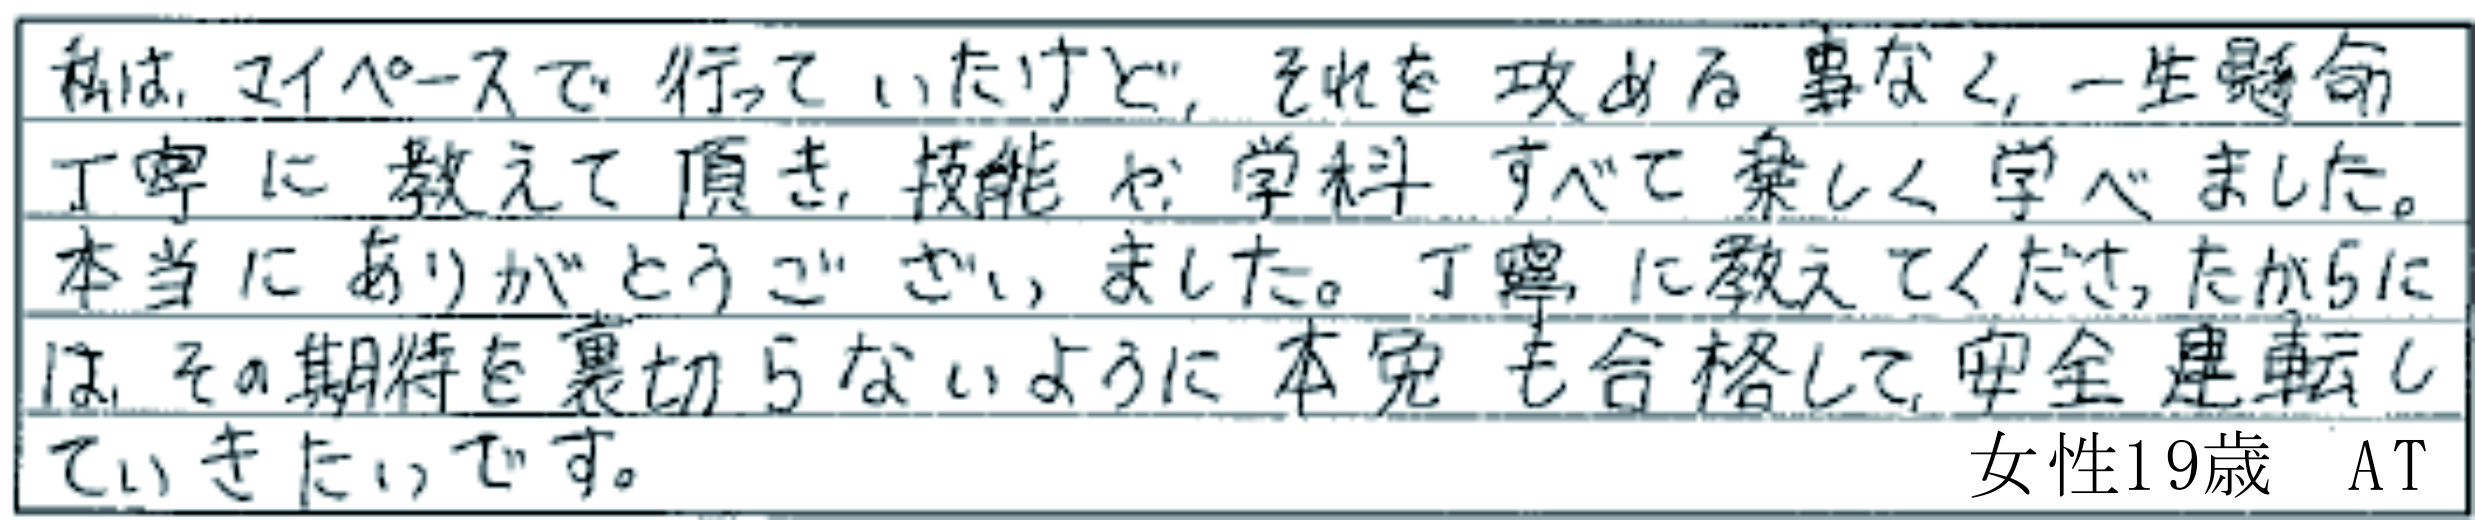 私は、マイペースで行っていたけど、それを攻める事なく、一生懸命
丁寧に教えて頂き、技能や、学科すべて楽しく学べました。
本当にありがとうございました。丁寧に教えてくださったからに
は、その期待を裏切らないように本免も合格して、安全運転し
ていきたいです。
女性19歳　AT